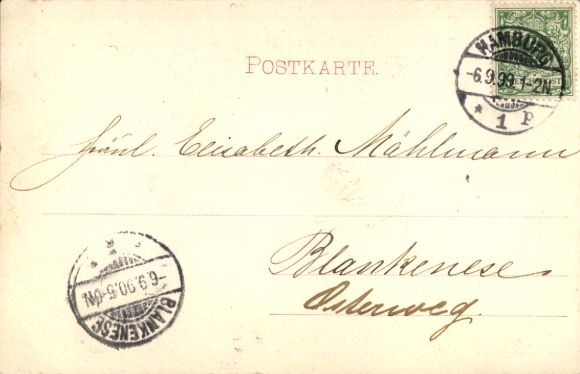 HAMBURG
-6.9.99.1-2N.
* 1 P
POSTKARTE.
Fräul. Elisabeth. Mählmann
Blankenese.
Osterweg.
-6.9.90.5-6N.
BLANKENESE